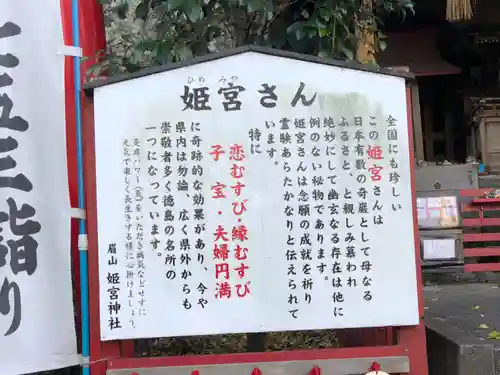 姫宮さん
ひめ みや
全国にも珍しい
この姫宮さんは
日本有数の奇巌として母なる
ふるさと、と親しみ慕われ
絶妙にして幽玄なる存在は他に
例のない秘物であります。
姫宮さんは念願の成就を祈り
霊験あらたかなりと伝えられて
います。
特に
恋むすび・縁むすび
子宝・夫婦円満
に奇跡的な効果があり、今や
県内は勿論、広く県外からも
崇敬者多く徳島の名所の
一つになっています。
是非パワー(気)をいただき病気などせずに
元気で楽しく長生きする様に心掛けましょう。
眉山 姫宮神社
五三詣り